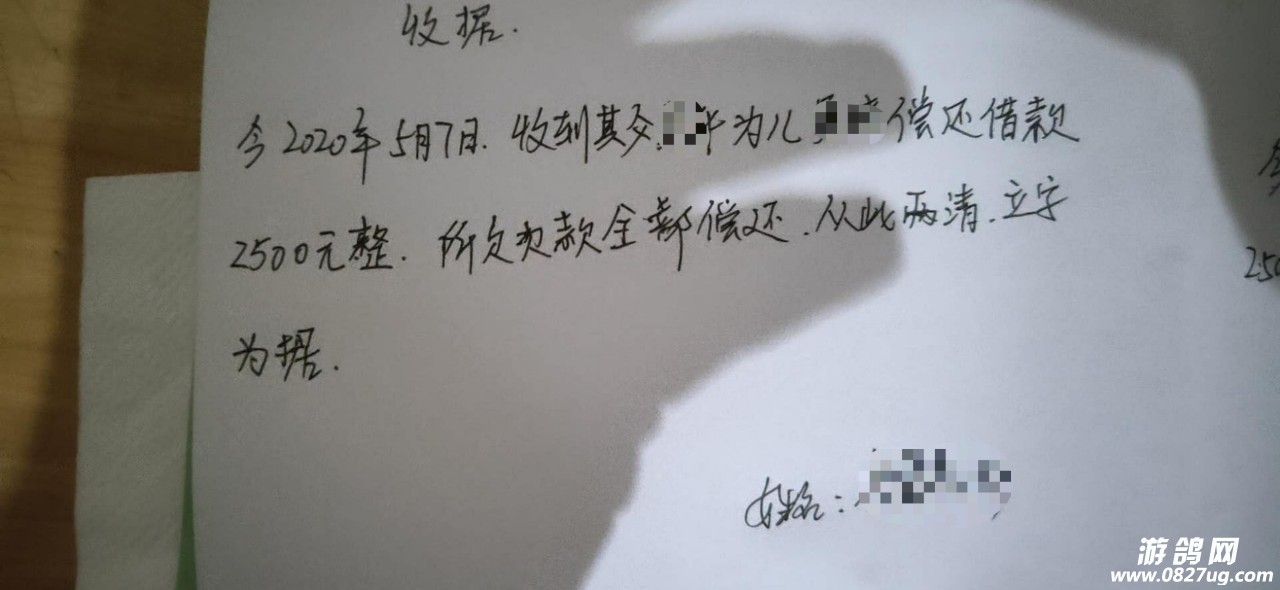 收据.
今2020年5月7日.收到其父 为儿 偿还借款
2500元整.所欠欠款全部偿还.从此两清.立字
为据.
姓名:
250
游鸽网
www.0827ug.com